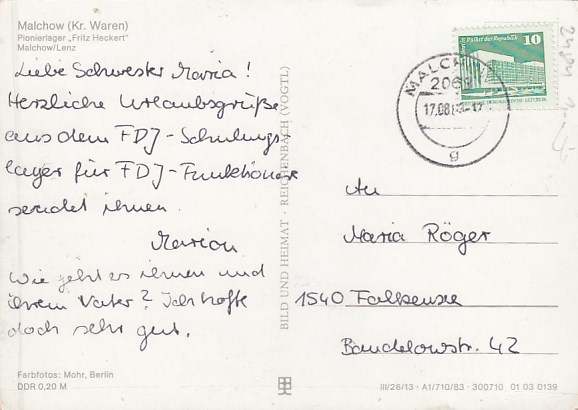 Malchow (Kr. Waren)
Pionierlager „Fritz Heckert"
Malchow/Lenz
Liebe Schwester Maria!
Herzliche Urlaubsgrüße
aus dem FDJ-Schulungs-
lager für FDJ-Funktionäre
sendet ihnen
Marion
Wie geht es ihnen und
ihrem Vater? Ich hoffe
doch sehr gut.
Farbfotos: Mohr, Berlin
DDR 0,20 M
BILD UND HEIMAT · REICHENBACH (VOGTL)
Palast der Republik
10
MALCHOW
2063
17.08.83-17
g
An
Maria Röger
1540 Falkensee
Bandelowstr. 42
III/26/13 · A1/710/83 · 300710 01 03 0139